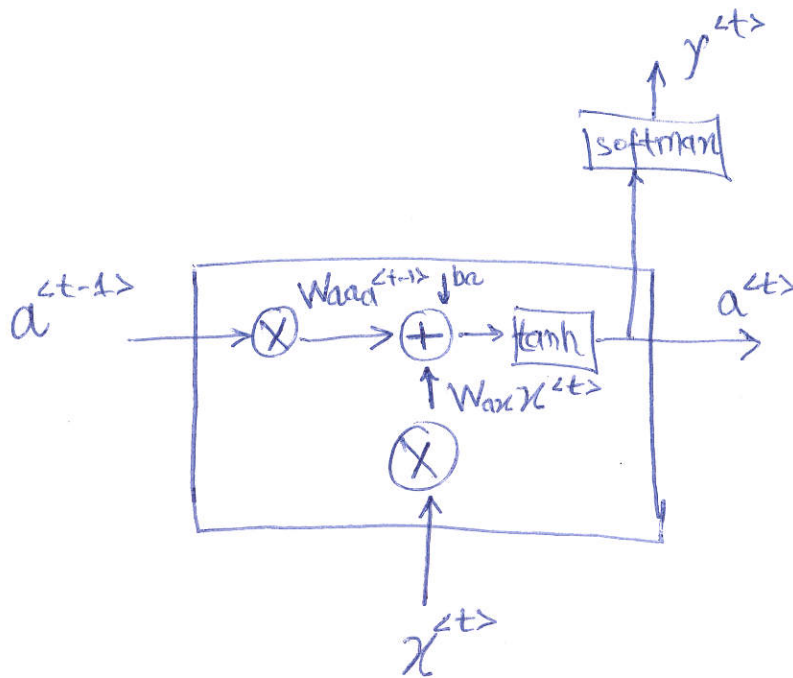 y<t>
softmax
a<t-1>
Waaa<t-1>
ba
a<t>
×
+
tanh
Waxx<t>
×
x<t>